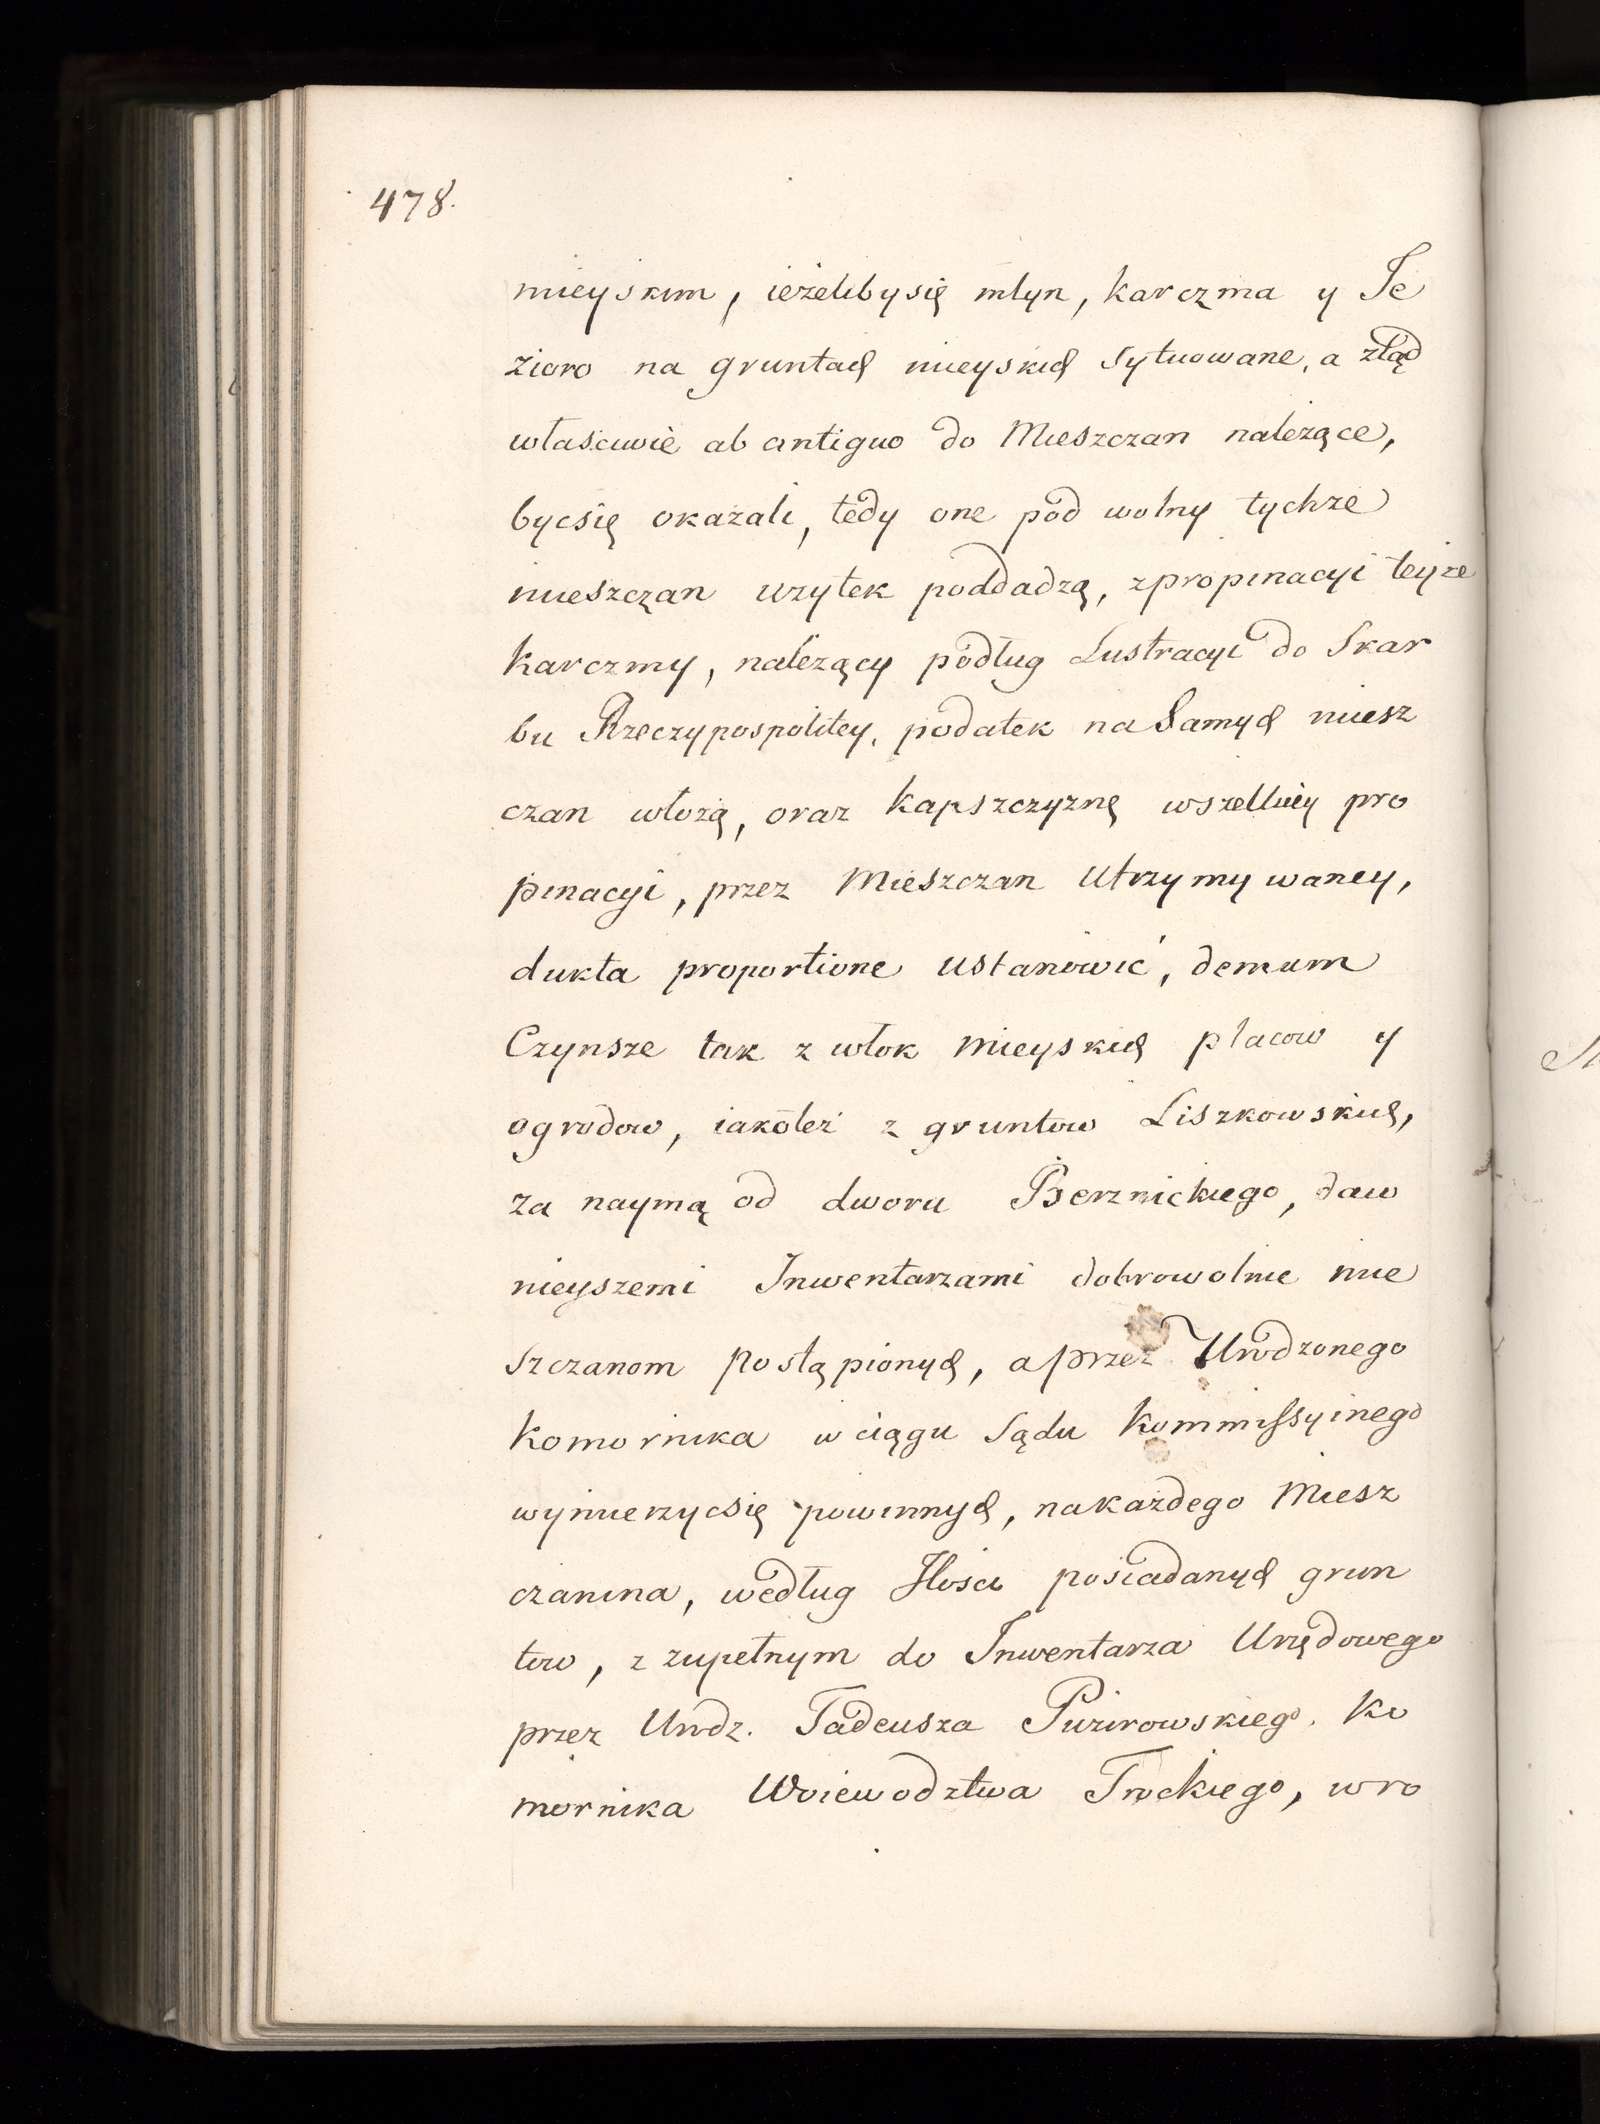 478.
mieyskim, ieżelibysię młyn, karczma y Je
zioro na gruntach mieyskich sytuowane, a ztąd
własciwie ab antiquo do Mieszczan należące,
bycsię okazali, tedy one pod wolny tychże
mieszczan uzytek poddadzą, zpropinacyi teyże
karczmy, nalezący podług Lustracyi do Skar
bu Rzeczypospolitey, podatek na Samych miesz
czan włożą, oraz kapszczyznę wszelkiey pro
pinacyi, przez Mieszczan utrzymywaney,
dukta proportione ustanowić, demum
Czynsze tak z włok mieyskich placow y
ogrodow, iakoteż z gruntow Liszkowskich,
za naymą od dworu Berznickiego, daw
nieyszemi Inwentarzami dobrowolnie mie
szczanom postąpionych, a przez Urodzonego
Komornika w ciągu Sądu Kommissyinego
wymierzycsię powinnych, nakażdego Miesz
czanina, według Ilosci posiadanych grun
tow, z zupełnym do Inwentarza Urzędowego
przez Urodz. Tadeusza Puzirowskiego. Ko
mornika Woiewodztwa Trockiego, wro